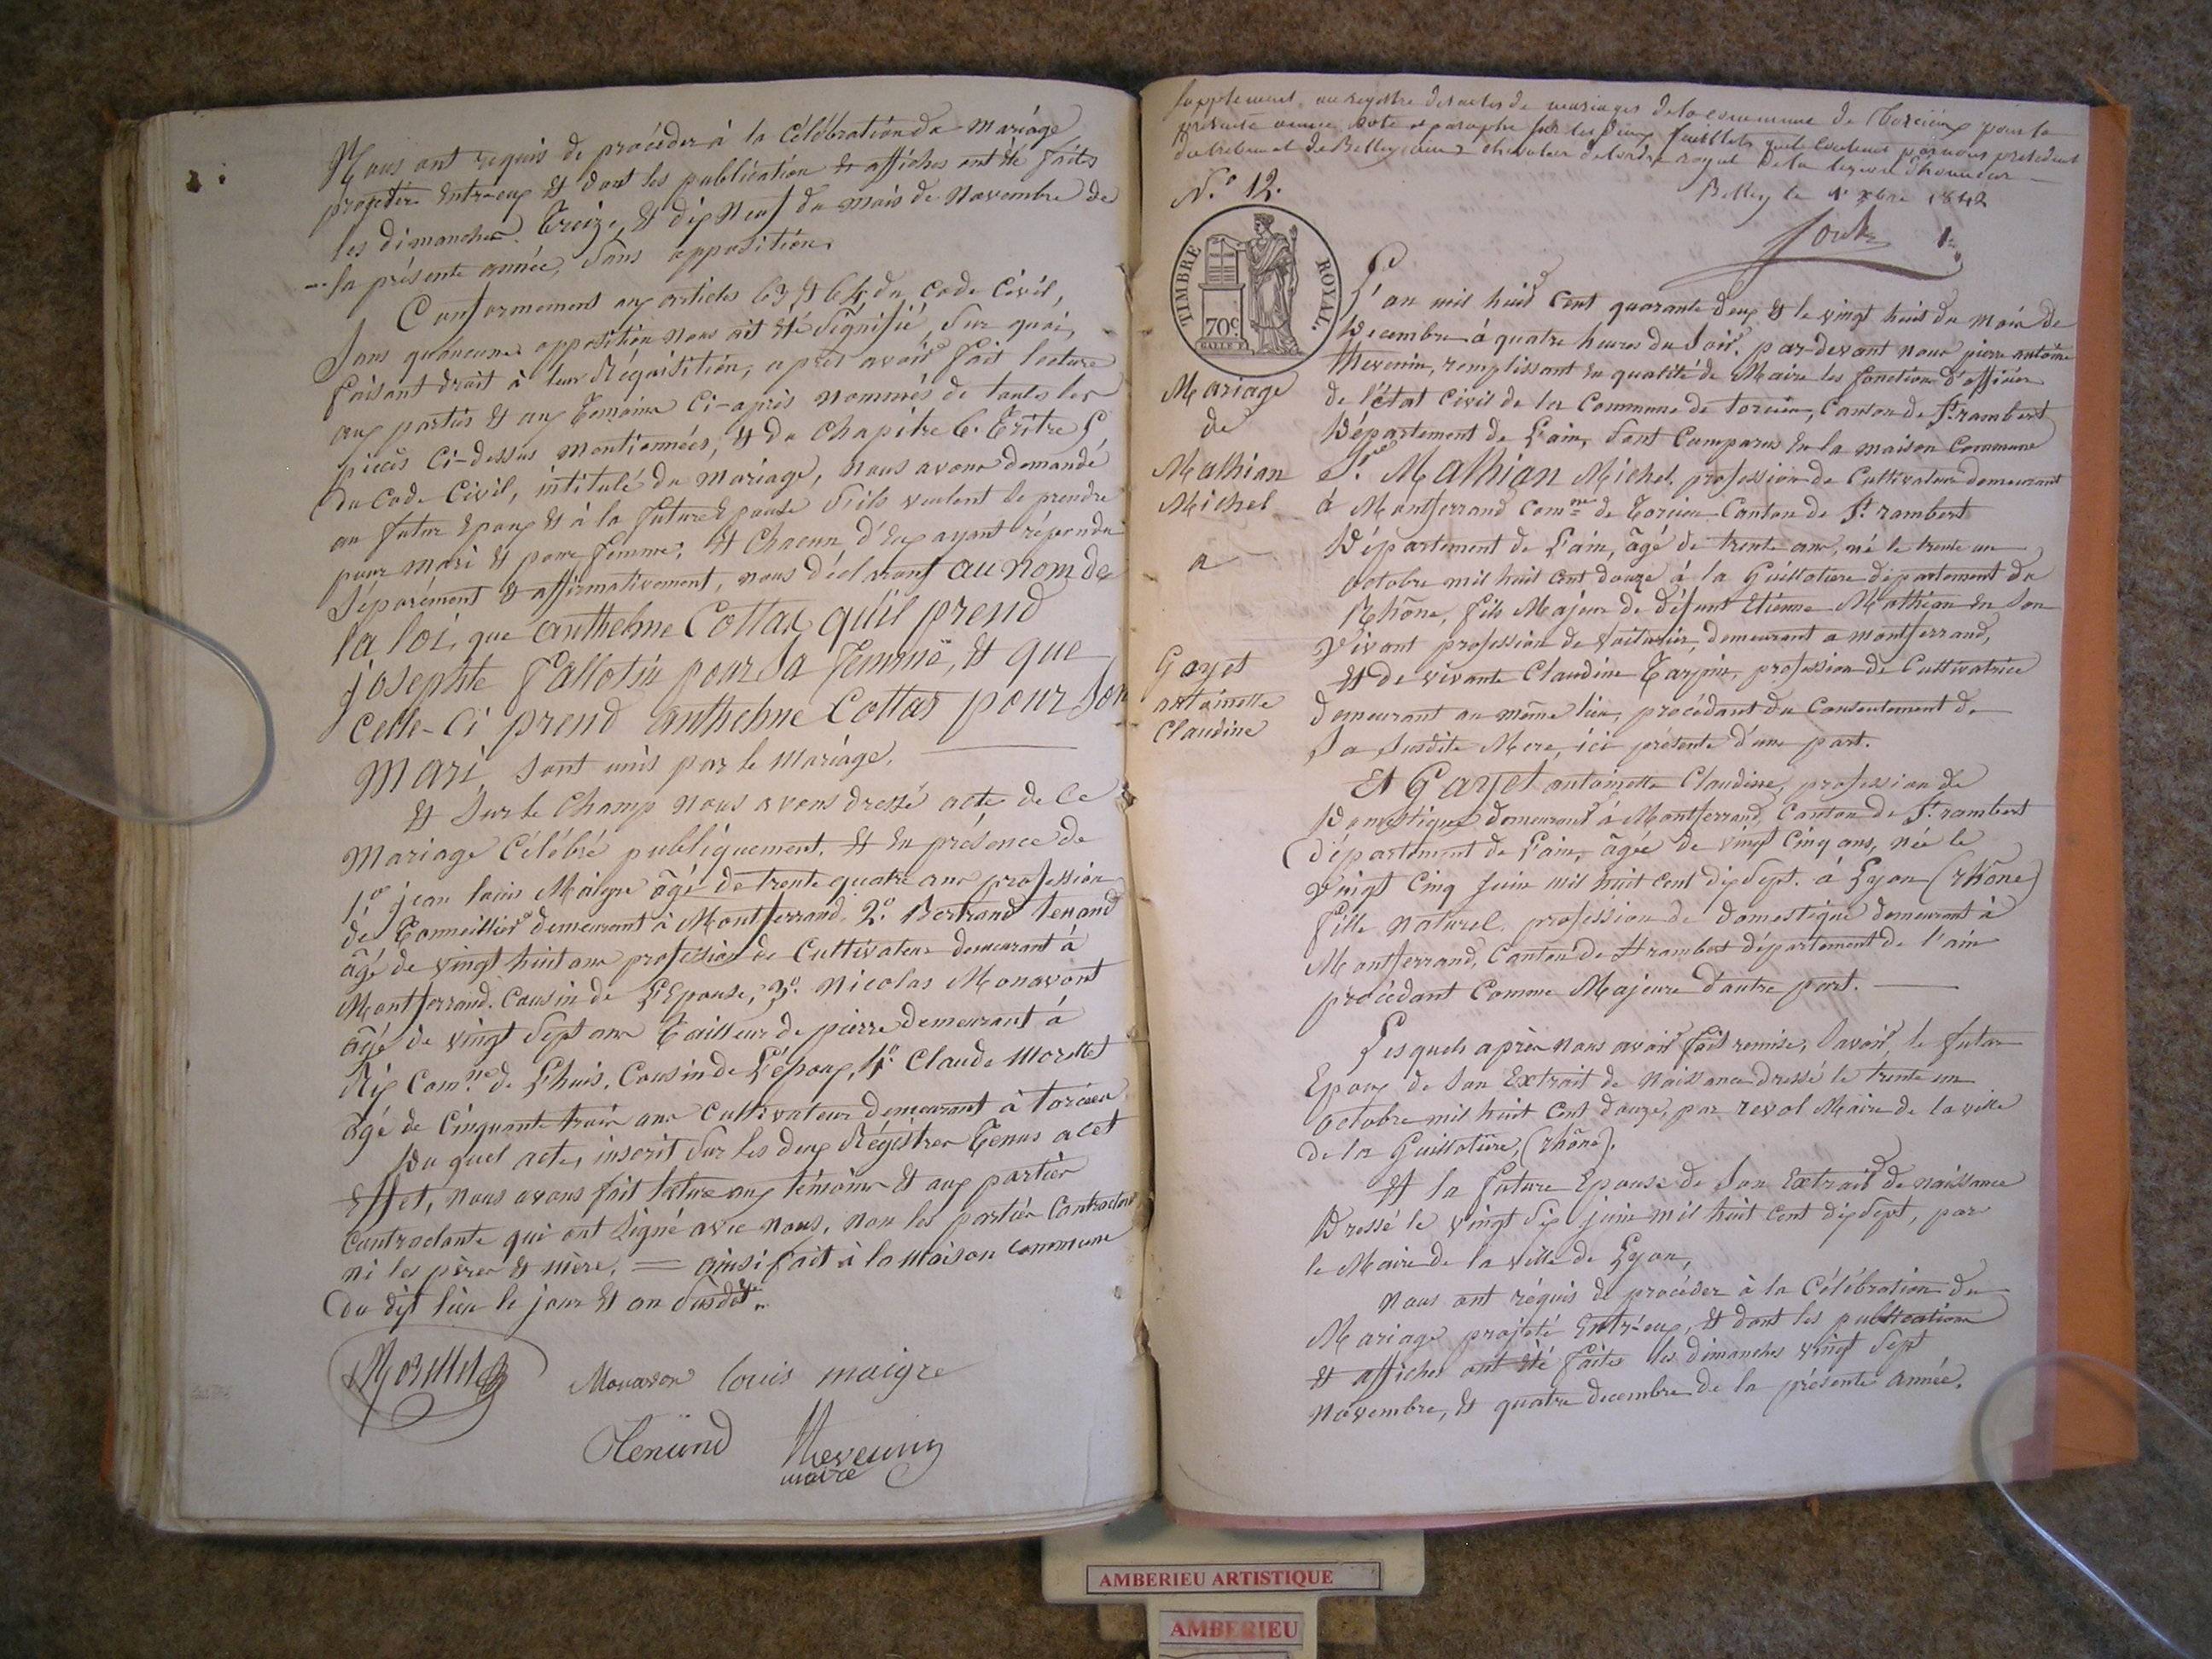 Nous ont requis de procéder à la Célébration du mariage
projetté entr'eux et dont les publication et affiches ont été faites
les dimanches Treize, et dix neuf du mois de Novembre de
la présente année, sans opposition.
Conformement aux articles 63 et 64 du Code Civil,
Sans qu'aucune opposition nous ait été Signifié, Sur quoi,
faisant droit à leur Réquisition, après avoir fait lecture
aux parties et aux Temoins Ci-après nommés de toutes les
pièces Ci-dessus mentionnées, et du Chapitre 6. Tritre 5
du Code Civil, intitulé du mariage, nous avons demandé
au futur Epoux et à la future Epouse S'ils veulent se prendre
pour mari et pour femme; et Chacun d'eux ayant répondu
Séparément et affirmativement, nous déclarons au nom de
la loi, que anthelme Cottas qu'il prend
josephte Fallotin pour sa femme, et que
celle-Ci prend anthelme Cottas pour Son
Mari, sont unis par le mariage.
Et Sur le Champ nous avons dressé acte de Ce
Mariage Célébré publiquement. et en présence de
1.o jean louis Maigre âgé de trente quatre ans profession
de Tonneillier demeurant à Montferrand 2.o Bertrand Tenand
âgé de vingt huit ans profession de Cultivateur demeurant à
Montferrand. Cousin de l'Epouse, 3.o Nicolas Monavont
âgé de vingt Sept ans Tailleur de pierre demeurant à
Rix Com.ne de Lhuis. Cousin de L'époux, 4.o Claude Morellet
âgé de Cinquante trois ans Cultivateur demeurant à torcieu
Du quel acte, inscrit Sur les deux Régistres Tenus a cet
Effet, nous avons fait lecture aux témoins et aux parties
Contractante qui ont Signé avec nous, non les parties Contractant
ni les pères et mère. = ainsi fait à la Maison commune
du dit lieu le jour et an susdit.
Morellet Monavon louis maigre
Tenand Thevenin
maire
Supplement au registre des actes de mariages de la commune de Torcieu pour la
présente année coté et paraphé sur les deux feuillets qu'il contient par nous president
du tribunal de Belley chevalier de l'ordre royal de la legion d'honneur
Belley le 1er xbre 1842
N.o 12.
TIMBRE ROYAL.
70c
L'an mil huit Cent quarante deux et le vingt huit du mois de
Decembre à quatre heures du Soir. par-devant nous pierre antoine
thevenin, remplissant en qualité de Maire les fonction d'officier
de l'état Civil de la Commune de torcieu, Canton de St rambert
Département de L'ain, Sont Comparus En la maison Commune
Mariage
de
Mathian
Michel
a
Gayet
antoinette
Claudine
Sr. Mathian Michel profession de Cultivateur demeurant
à Montferrand Com.ne de Torcieu Canton de St rambert
Département de L'ain, âgé de trente ans, né le trente un
octobre mil huit cent douze à la Guillotiere département du
Rhône, fils Majeur de défunt Etienne Mathian En Son
Vivant profession de Voiturier, demeurant a montferrand,
et de vivante Claudine Tarpin, profession de Cultivatrice
demeurant au même lieu, procédant du Consentement de
Sa Susdite Mere, ici présente d'une part.
Et Gayet antoinette Claudine, profession de
Domestique demeurant à Montferrand, Canton de St rambert
département de L'ain, âgée de vingt Cinq ans, née le
Vingt Cinq juin mil huit cent dix sept. à Lyon (Rhône)
fille naturel. profession de domestique demeurant à
Montferrand, Canton de St rambert département de l'ain
procédant Comme Majeure d'autre part.
Lesquels après nous avoir fait remise, Savoir, le futur
Epoux de Son Extrait de Naissance dressé le trente un
octobre mil huit Cent douze, par revol Maire de la ville
de la Guillotière, (rhône).
Et la future Epouse de Son Extrait de naissance
Dressé le vingt Six juin mil huit Cent dix Sept, par
le Maire de la ville de Lyon,
Nous ont réquis de procéder à la Célébration du
Mariage projeté Entr'eux, et dont les publication
et affiches ont été faites les dimanches vingt Sept
Novembre, et quatre decembre de la présente année.
AMBERIEU ARTISTIQUE
AMBERIEU